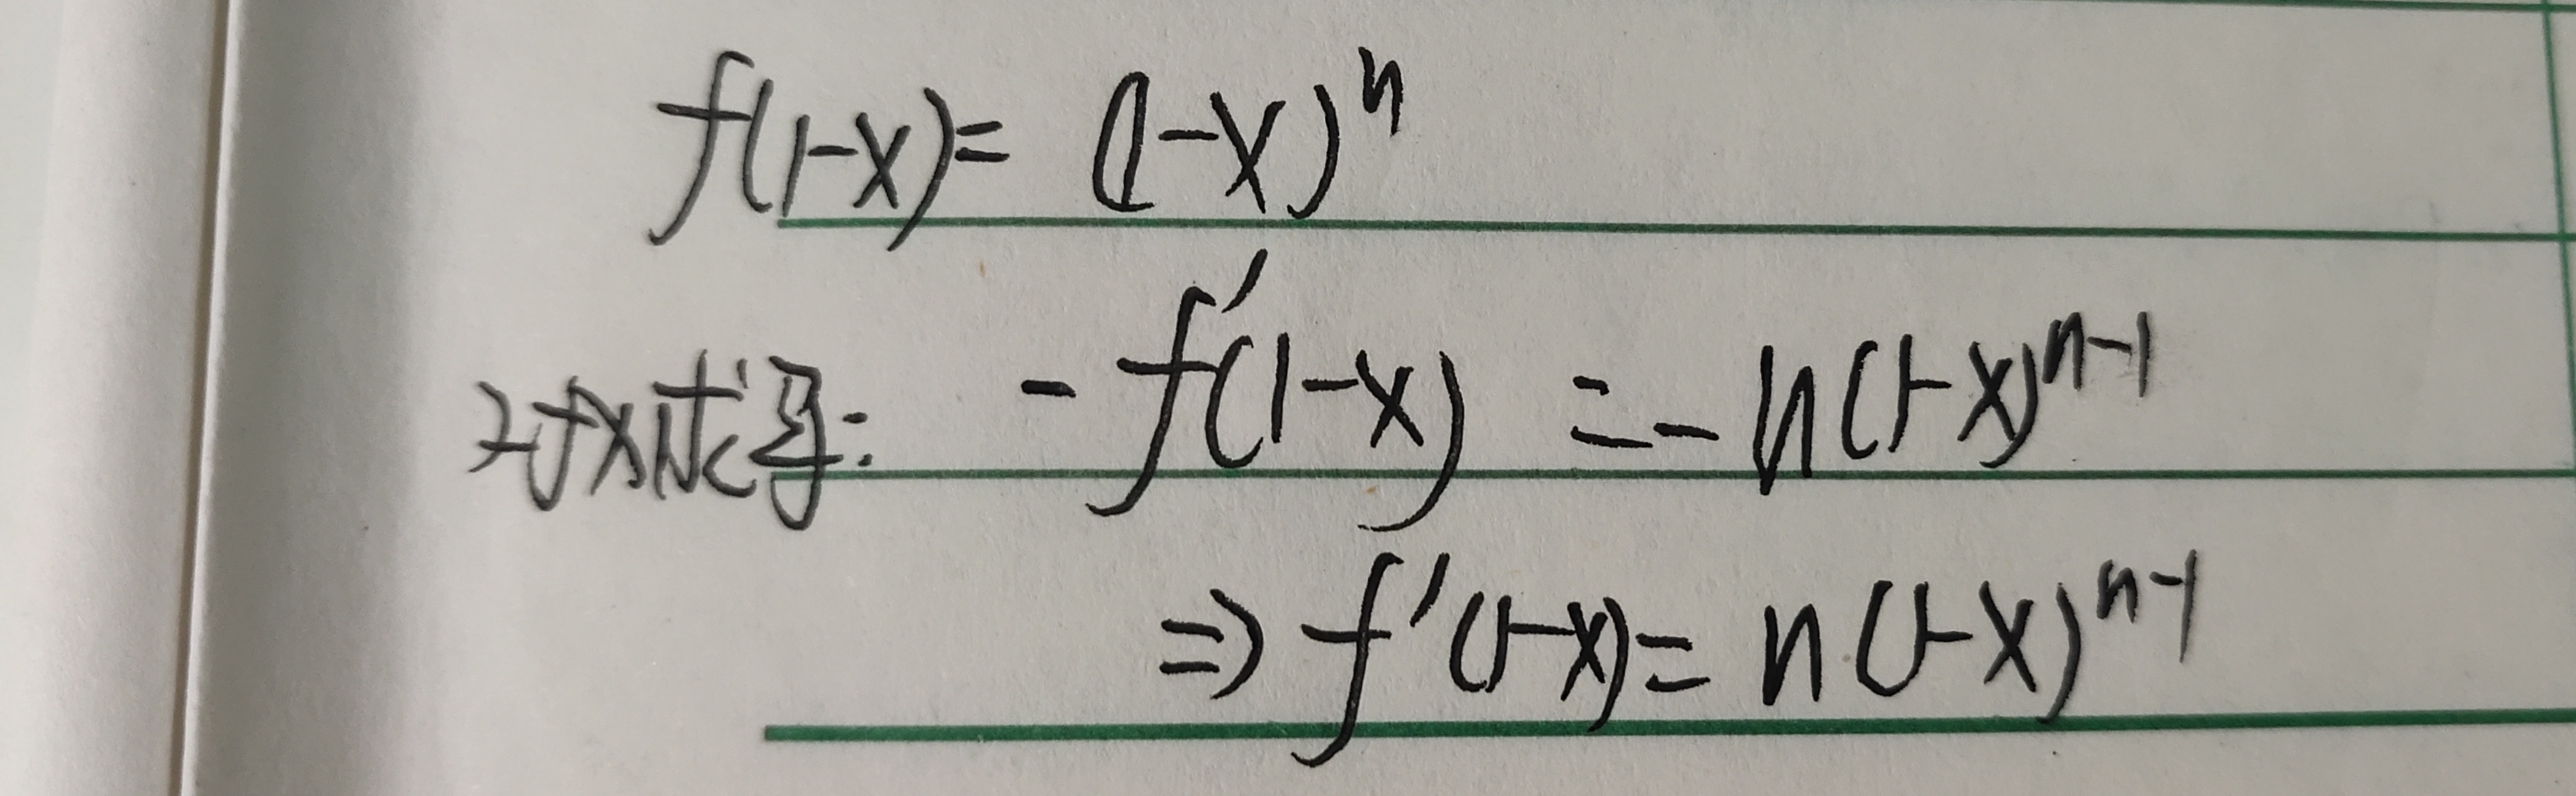 f(1-x)= (1-x)^n
对x求导: -f'(1-x) =-n(1-x)^{n-1}
⇒ f'(1-x)= n(1-x)^{n-1}